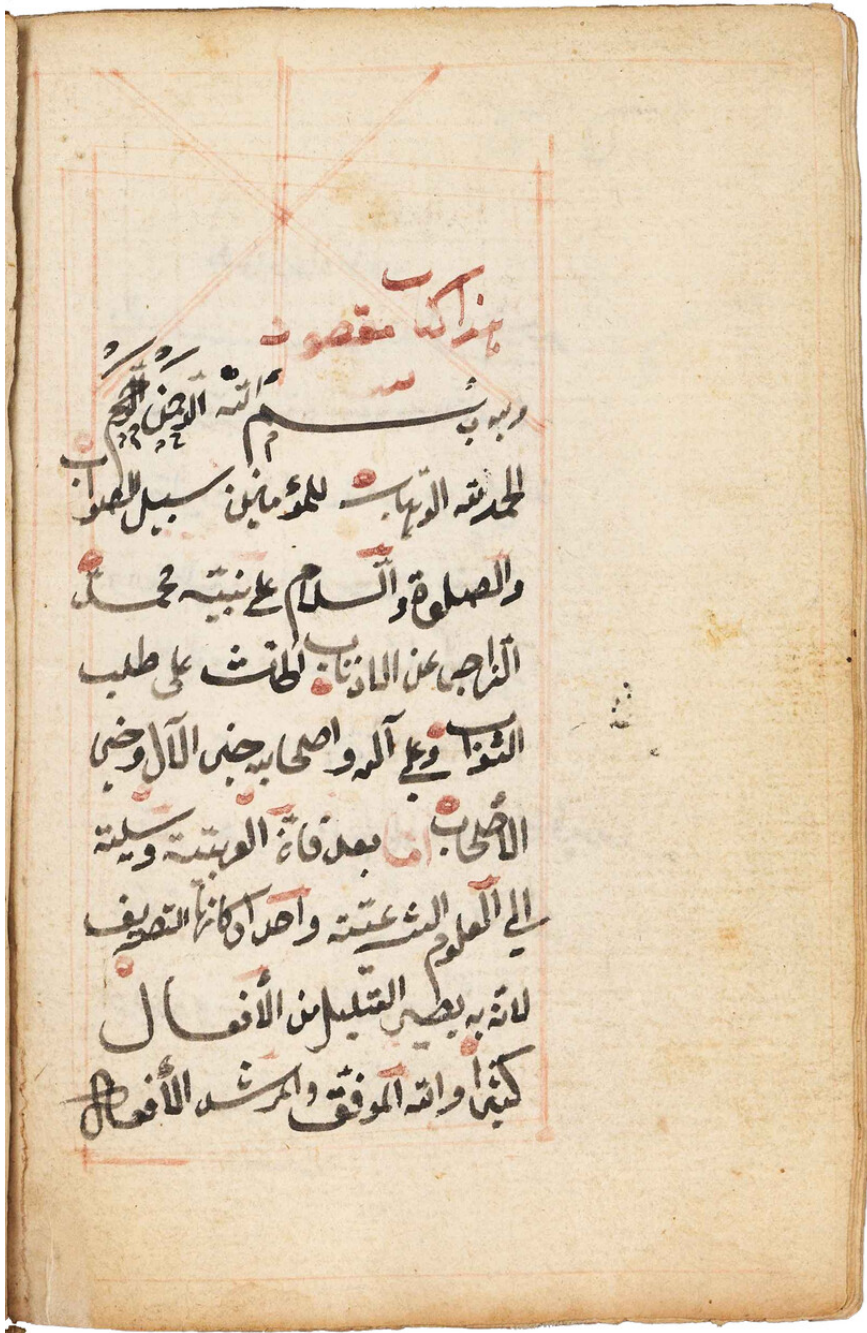 هذا كتاب مقصود
بسم الله الرحمن الرحيم
الحمد لله الوهاب للمؤمنين سبيل الصواب
والصلوة والسلام على نبيه محمد
الزاجر عن الاذناب الحاث على طلب
الثواب وعلى آله واصحابه خير الآل وخير
الأصحاب اما بعد فان العربية وسيلة
الي العلوم الشرعية واحد اركانها التصريف
لانه به يصير القليل من الأفعال
كثيرا والله الموفق والمرشد الأفعال